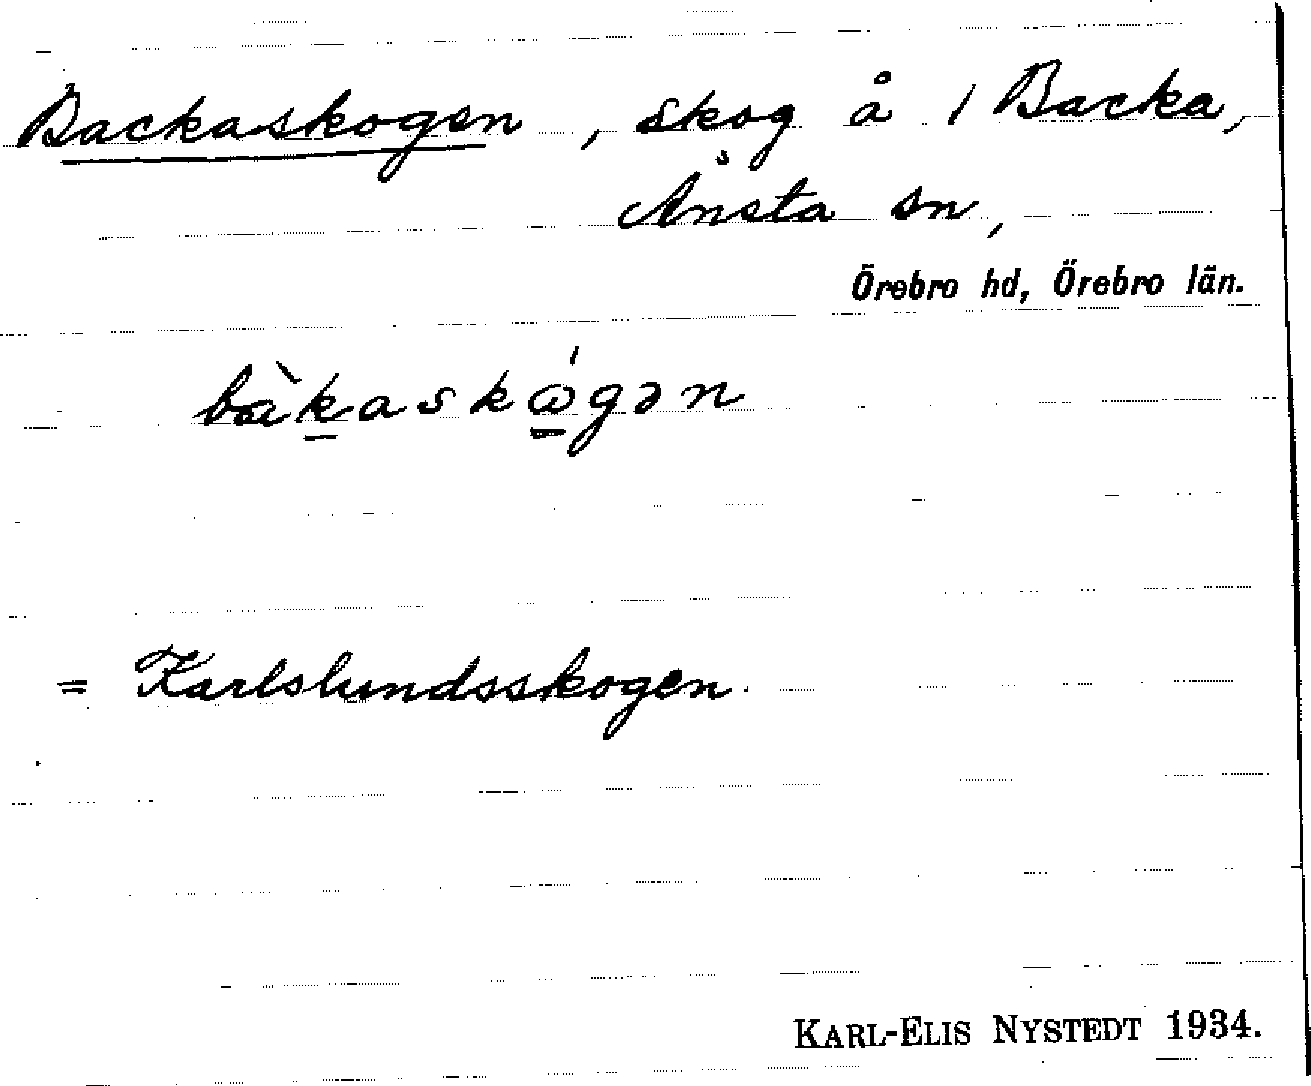 Backaskogen, skog å 1 Backa,
Ånsta sn,
Örebro hd, Örebro län.
bàkaskώgən
= Karlslundsskogen.
KARL-ELIS NYSTEDT 1934.